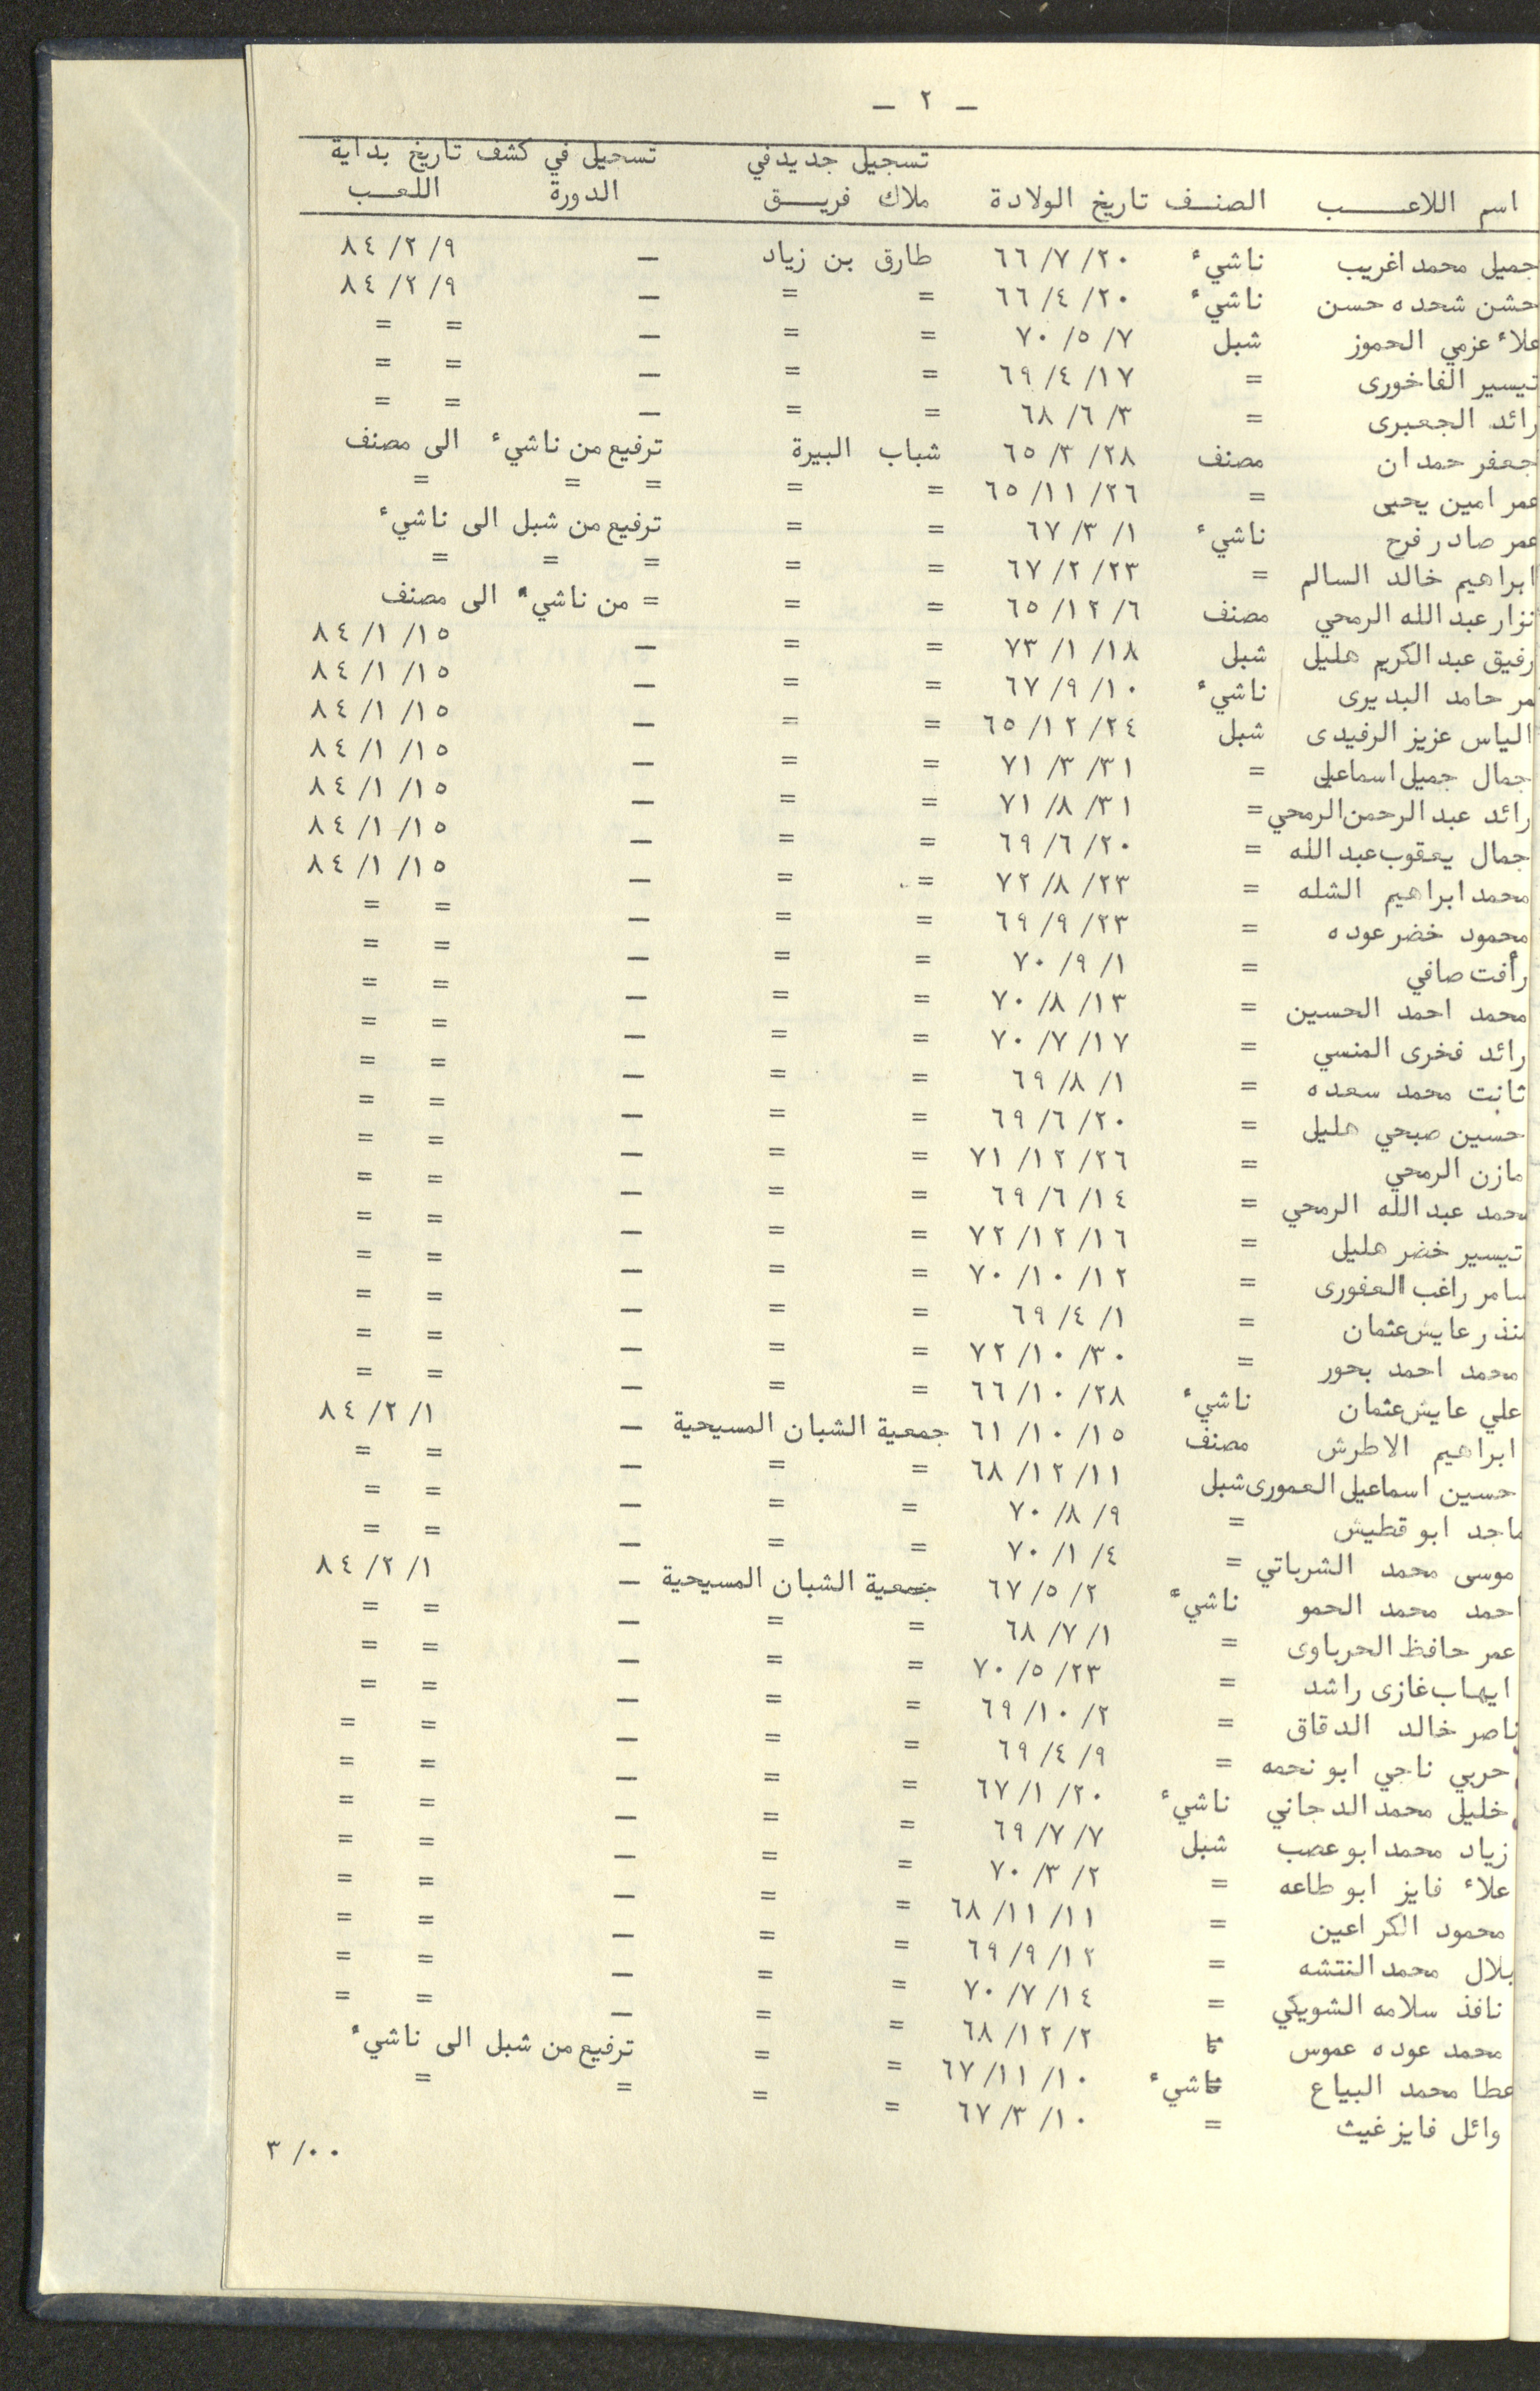 — ٢ —
اسم اللاعب الصنف تاريخ الولادة تسجيل جديد في ملاك فريق تسجيل في كشف الدورة تاريخ بداية اللعب
جميل محمد اغريب ناشيء ٢٠/ ٧/ ٦٦ طارق بن زياد — ٩/ ٢/ ٨٤
حشن شحده حسن ناشيء ٢٠/ ٤/ ٦٦ = = — ٩/ ٢/ ٨٤
علاء عزمي الحموز شبل ٧/ ٥/ ٧٠ = = — = =
تيسير الفاخورى = ١٧/ ٤/ ٦٩ = = — = =
رائد الجعبرى = ٣/ ٦/ ٦٨ = = — = =
جعفر حمدان مصنف ٢٨/ ٣/ ٦٥ شباب البيرة ترفيع من ناشيء الى مصنف
عمر امين يحيى = ٢٦/ ١١/ ٦٥ = = = = =
عمر صادر فرح ناشيء ١/ ٣/ ٦٧ = = ترفيع من شبل الى ناشيء
ابراهيم خالد السالم = ٢٣/ ٢/ ٦٧ = = = = =
نزار عبد الله الرمحي مصنف ٦/ ١٢/ ٦٥ = = = من ناشيء الى مصنف
رفيق عبد الكريم هليل شبل ١٨/ ١/ ٧٣ = = — ١٥/ ١/ ٨٤
مر حامد البديرى ناشيء ١٠/ ٩/ ٦٧ = = — ١٥/ ١/ ٨٤
الياس عزيز الرفيدى شبل ٢٤/ ١٢/ ٦٥ = = — ١٥/ ١/ ٨٤
جمال جميل اسماعيل = ٣١/ ٣/ ٧١ = = — ١٥/ ١/ ٨٤
رائد عبد الرحمن الرمحي = ٣١/ ٨/ ٧١ = = — ١٥/ ١/ ٨٤
جمال يعقوب عبد الله = ٢٠/ ٦/ ٦٩ = = — ١٥/ ١/ ٨٤
محمد ابراهيم الشله = ٢٣/ ٨/ ٧٢ = = — ١٥/ ١/ ٨٤
محمود خضر عوده = ٢٣/ ٩/ ٦٩ = = — = =
رأفت صافي = ١/ ٩/ ٧٠ = = — = =
محمد احمد الحسين = ١٣/ ٨/ ٧٠ = = — = =
رائد فخرى المنسي = ١٧/ ٧/ ٧٠ = = — = =
ثابت محمد سعده = ١/ ٨/ ٦٩ = = — = =
حسين صبحي هليل = ٢٠/ ٦/ ٦٩ = = — = =
مازن الرمحي = ٢٦/ ١٢/ ٧١ = = — = =
محمد عبد الله الرمحي = ١٤/ ٦/ ٦٩ = = — = =
تيسير خضر هليل = ١٦/ ١٢/ ٧٢ = = — = =
سامر راغب العفورى = ١٢/ ١٠/ ٧٠ = = — = =
نذر عايش عثمان = ١/ ٤/ ٦٩ = = — = =
محمد احمد بحور = ٣٠/ ١٠/ ٧٢ = = — = =
علي عايش عثمان ناشيء ٢٨/ ١٠/ ٦٦ = = — = =
ابراهيم الاطرش مصنف ١٥/ ١٠/ ٦١ جمعية الشبان المسيحية — ١/ ٢/ ٨٤
حسين اسماعيل العمورى شبل ١١/ ١٢/ ٦٨ = = — = =
ماجد ابو قطيش = ٩/ ٨/ ٧٠ = = — = =
موسى محمد الشرباتي = ٤/ ١/ ٧٠ = = — = =
احمد محمد الحمو ناشيء ٢/ ٥/ ٦٧ جمعية الشبان المسيحية — ١/ ٢/ ٨٤
عمر حافظ الحرباوى = ١/ ٧/ ٦٨ = = — = =
ايهاب غازى راشد = ٢٣/ ٥/ ٧٠ = = — = =
ناصر خالد الدقاق = ٢/ ١٠/ ٦٩ = = — = =
حربي ناجي ابو نجمه = ٩/ ٤/ ٦٩ = = — = =
خليل محمد الدجاني ناشيء ٢٠/ ١/ ٦٧ = = — = =
زياد محمد ابو عصب شبل ٧/ ٧/ ٦٩ = = — = =
علاء فايز ابو طاعه = ٢/ ٣/ ٧٠ = = — = =
محمود الكراعين = ١١/ ١١/ ٦٨ = = — = =
بلال محمد النتشه = ١٢/ ٩/ ٦٩ = = — = =
نافذ سلامه الشويكي = ١٤/ ٧/ ٧٠ = = — = =
محمد عوده عموس ٢/ ١٢/ ٦٨ = = — = =
عطا محمد البياع ناشيء ١٠/ ١١/ ٦٧ = = ترفيع من شبل الى ناشيء
وائل فايز غيث = ١٠/ ٣/ ٦٧ = = = =
٠٠/ ٣